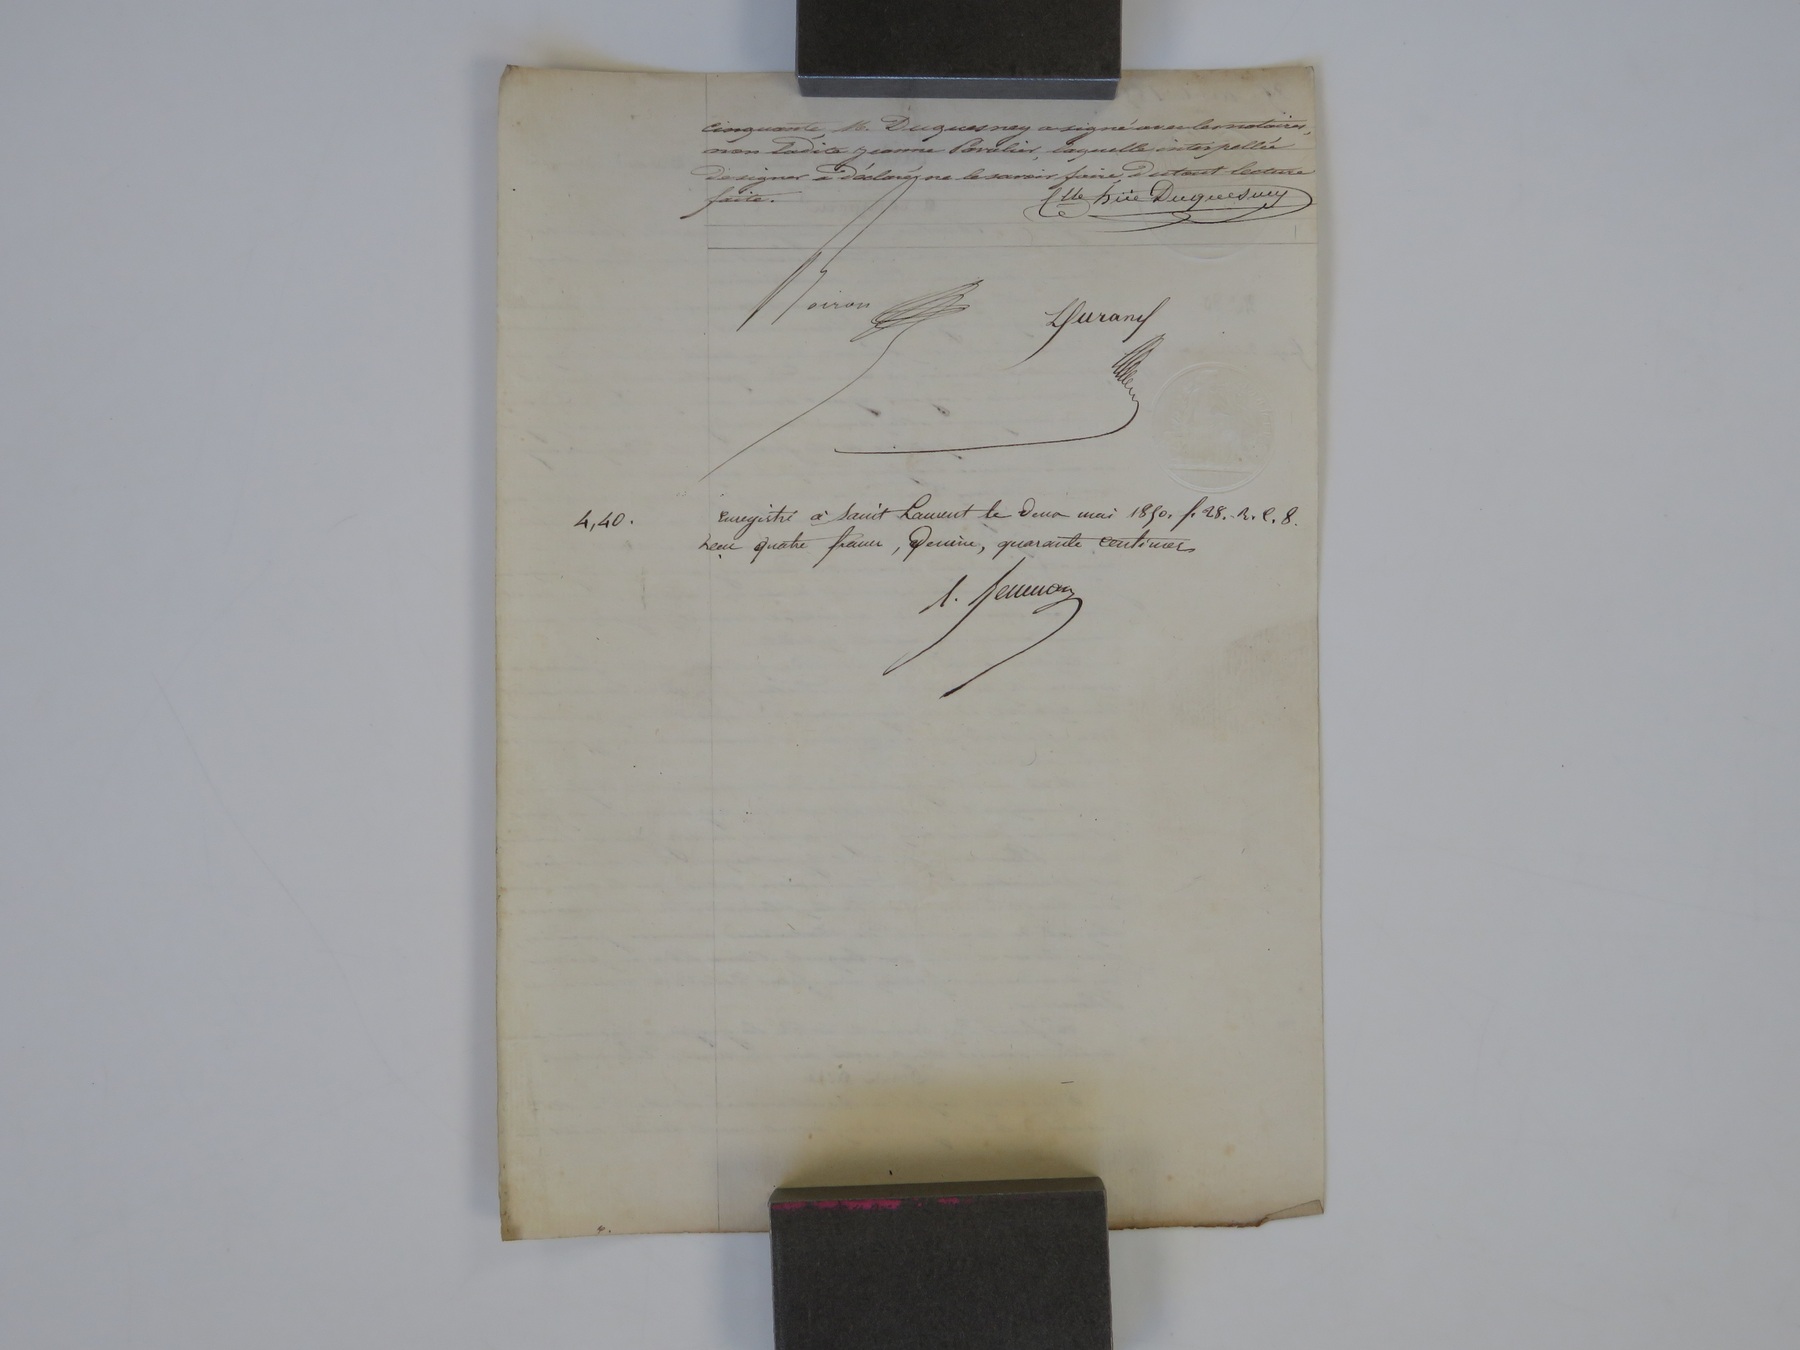 cinquante, M. Duquesney a signé avec les notaires,
non ladite Jeanne Pavalier, laquelle interpellée
de signer a déclaré ne le savoir faire du tout lecture
faite.
Duquesney
Voiron
Durand
4,40.
Enregistré à Saint Laurent le deux mai 1850. f. 28. R. C. 8.
Reçu quatre francs, Dixième, quarante centimes